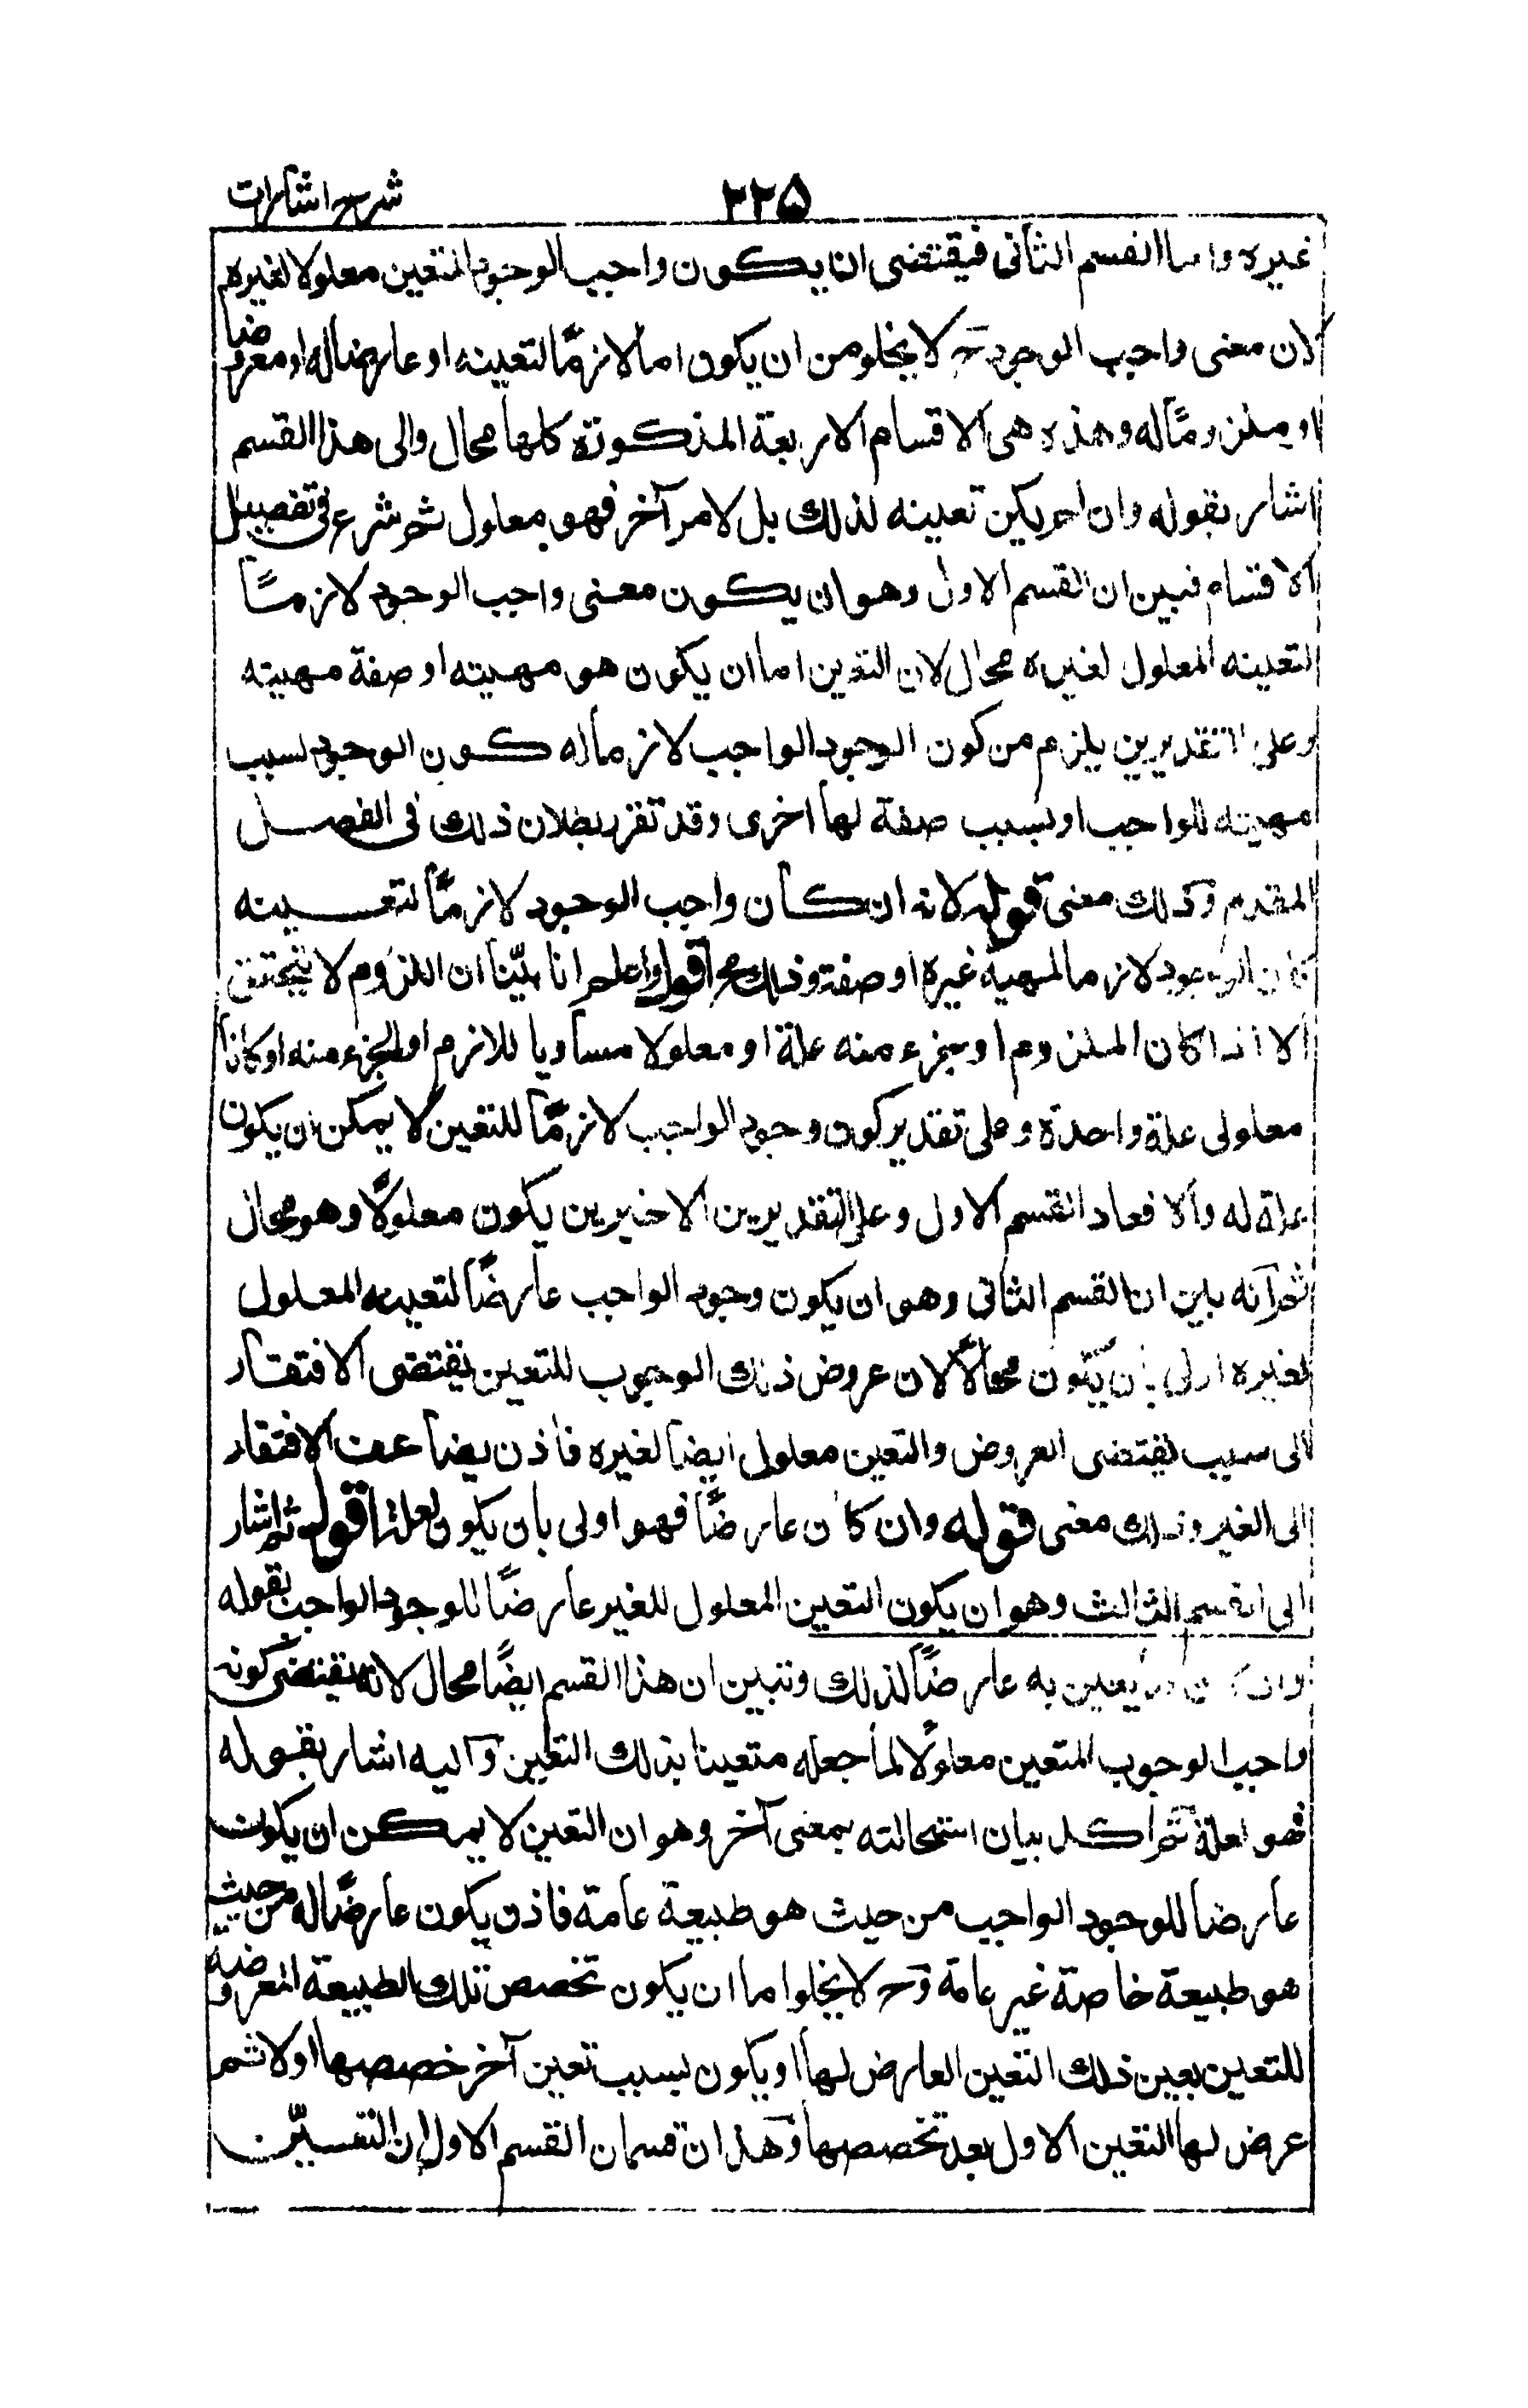 شرح اشارات
٢٢٥
غيره واما القسم الثانى فيقتضى ان يكون واجب الوجود المتعين معلولا لغيره
لان معنى واجب الوجود ح لا يخلو من ان يكون اما لازمًا لتعينه او عارضا له او معروضا
او ملزومًا له وهذه هى الاقسام الاربعة المذكورة كلها محال والى هذا القسم
اشار بقوله وان لم يكن تعينه لذلك بل لامر آخر فهو معلول ثم شرع فى تفصيل
الاقسام فبين ان القسم الاول وهو ان يكون معنى واجب الوجود لازمًا
لتعينه المعلول لغيره محال لان التعين اما ان يكون هو مهيته او صفة مهيته
وعلى التقديرين يلزم من كون الوجود الواجب لازما له كون الوجود لسبب
مهيته للواجب او بسبب صفة لها اخرى وقد تقرر بطلان ذلك فى الفصل
المقدم وذلك معنى قوله لانه ان كان واجب الوجود لازمًا لتعينه
كان الوجود لازما لمهية غيره او صفة وذلك مح اقول واعلم انا بيّنا ان اللزوم لا يتحقق
الا اذا كان الملزوم او جزء منه علة او معلولا مساويا للازم او لجزء منه او كانا
معلولى علة واحدة وعلى تقدير كون وجود الواجب لازمًا للتعين لا يمكن ان يكون
علة له والا فعاد القسم الاول وعلى التقديرين الاخيرين يكون معلولًا وهو محال
ثم انه بين ان القسم الثانى وهو ان يكون وجود الواجب عارضًا لتعينه المعلول
لغيره اولى بان يكون محالًا لان عروض ذلك الوجوب للتعين يقتضى الافتقار
الى سبب يقتضى العروض والتعين معلول ايضا لغيره فاذن يضاعف الافتقار
الى الغير وذلك معنى قوله وان كان عارضًا فهو اولى بان يكون لعلة اقول ثم اشار
الى القسم الثالث وهو ان يكون التعين المعلول للغير عارضًا للوجود الواجب بقوله
وان كان ما يتعين به عارضًا لذلك وتبين ان هذا القسم ايضًا محال لانه يقتضى كونه
واجب الوجوب المتعين معلولًا لما جعله متعينا بذلك التعين واليه اشار بقوله
فهو لعلة ثم اكمل بيان استحالته بمعنى آخر وهو ان التعين لا يمكن ان يكون
عارضا للوجود الواجب من حيث هو طبيعة عامة فاذن يكون عارضًا له من حيث
هو طبيعة خاصة غير عامة وح لا يخلوا ما ان يكون تخصص تلك الطبيعة المعروضة
للتعين بعين ذلك التعين العارض لها او يكون بسبب تعين آخر خصصها اولا ثم
عرض لها التعين الاول بعد تخصصها وهذان قسمان القسم الاول ان التعين